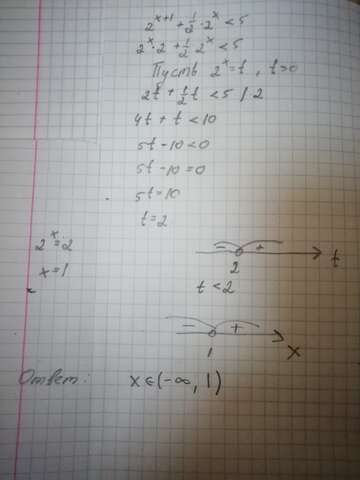 2^(x+1) + 1/2 · 2^x < 5
2^x · 2 + 1/2 · 2^x < 5
Пусть 2^x = t , t > 0
2t + 1/2 t < 5 | 2
4t + t < 10
5t - 10 < 0
5t - 10 = 0
5t = 10
t = 2
2^x = 2
x = 1
- +
2 t
t < 2
- +
1 x
Ответ: x ∈ (-∞, 1)